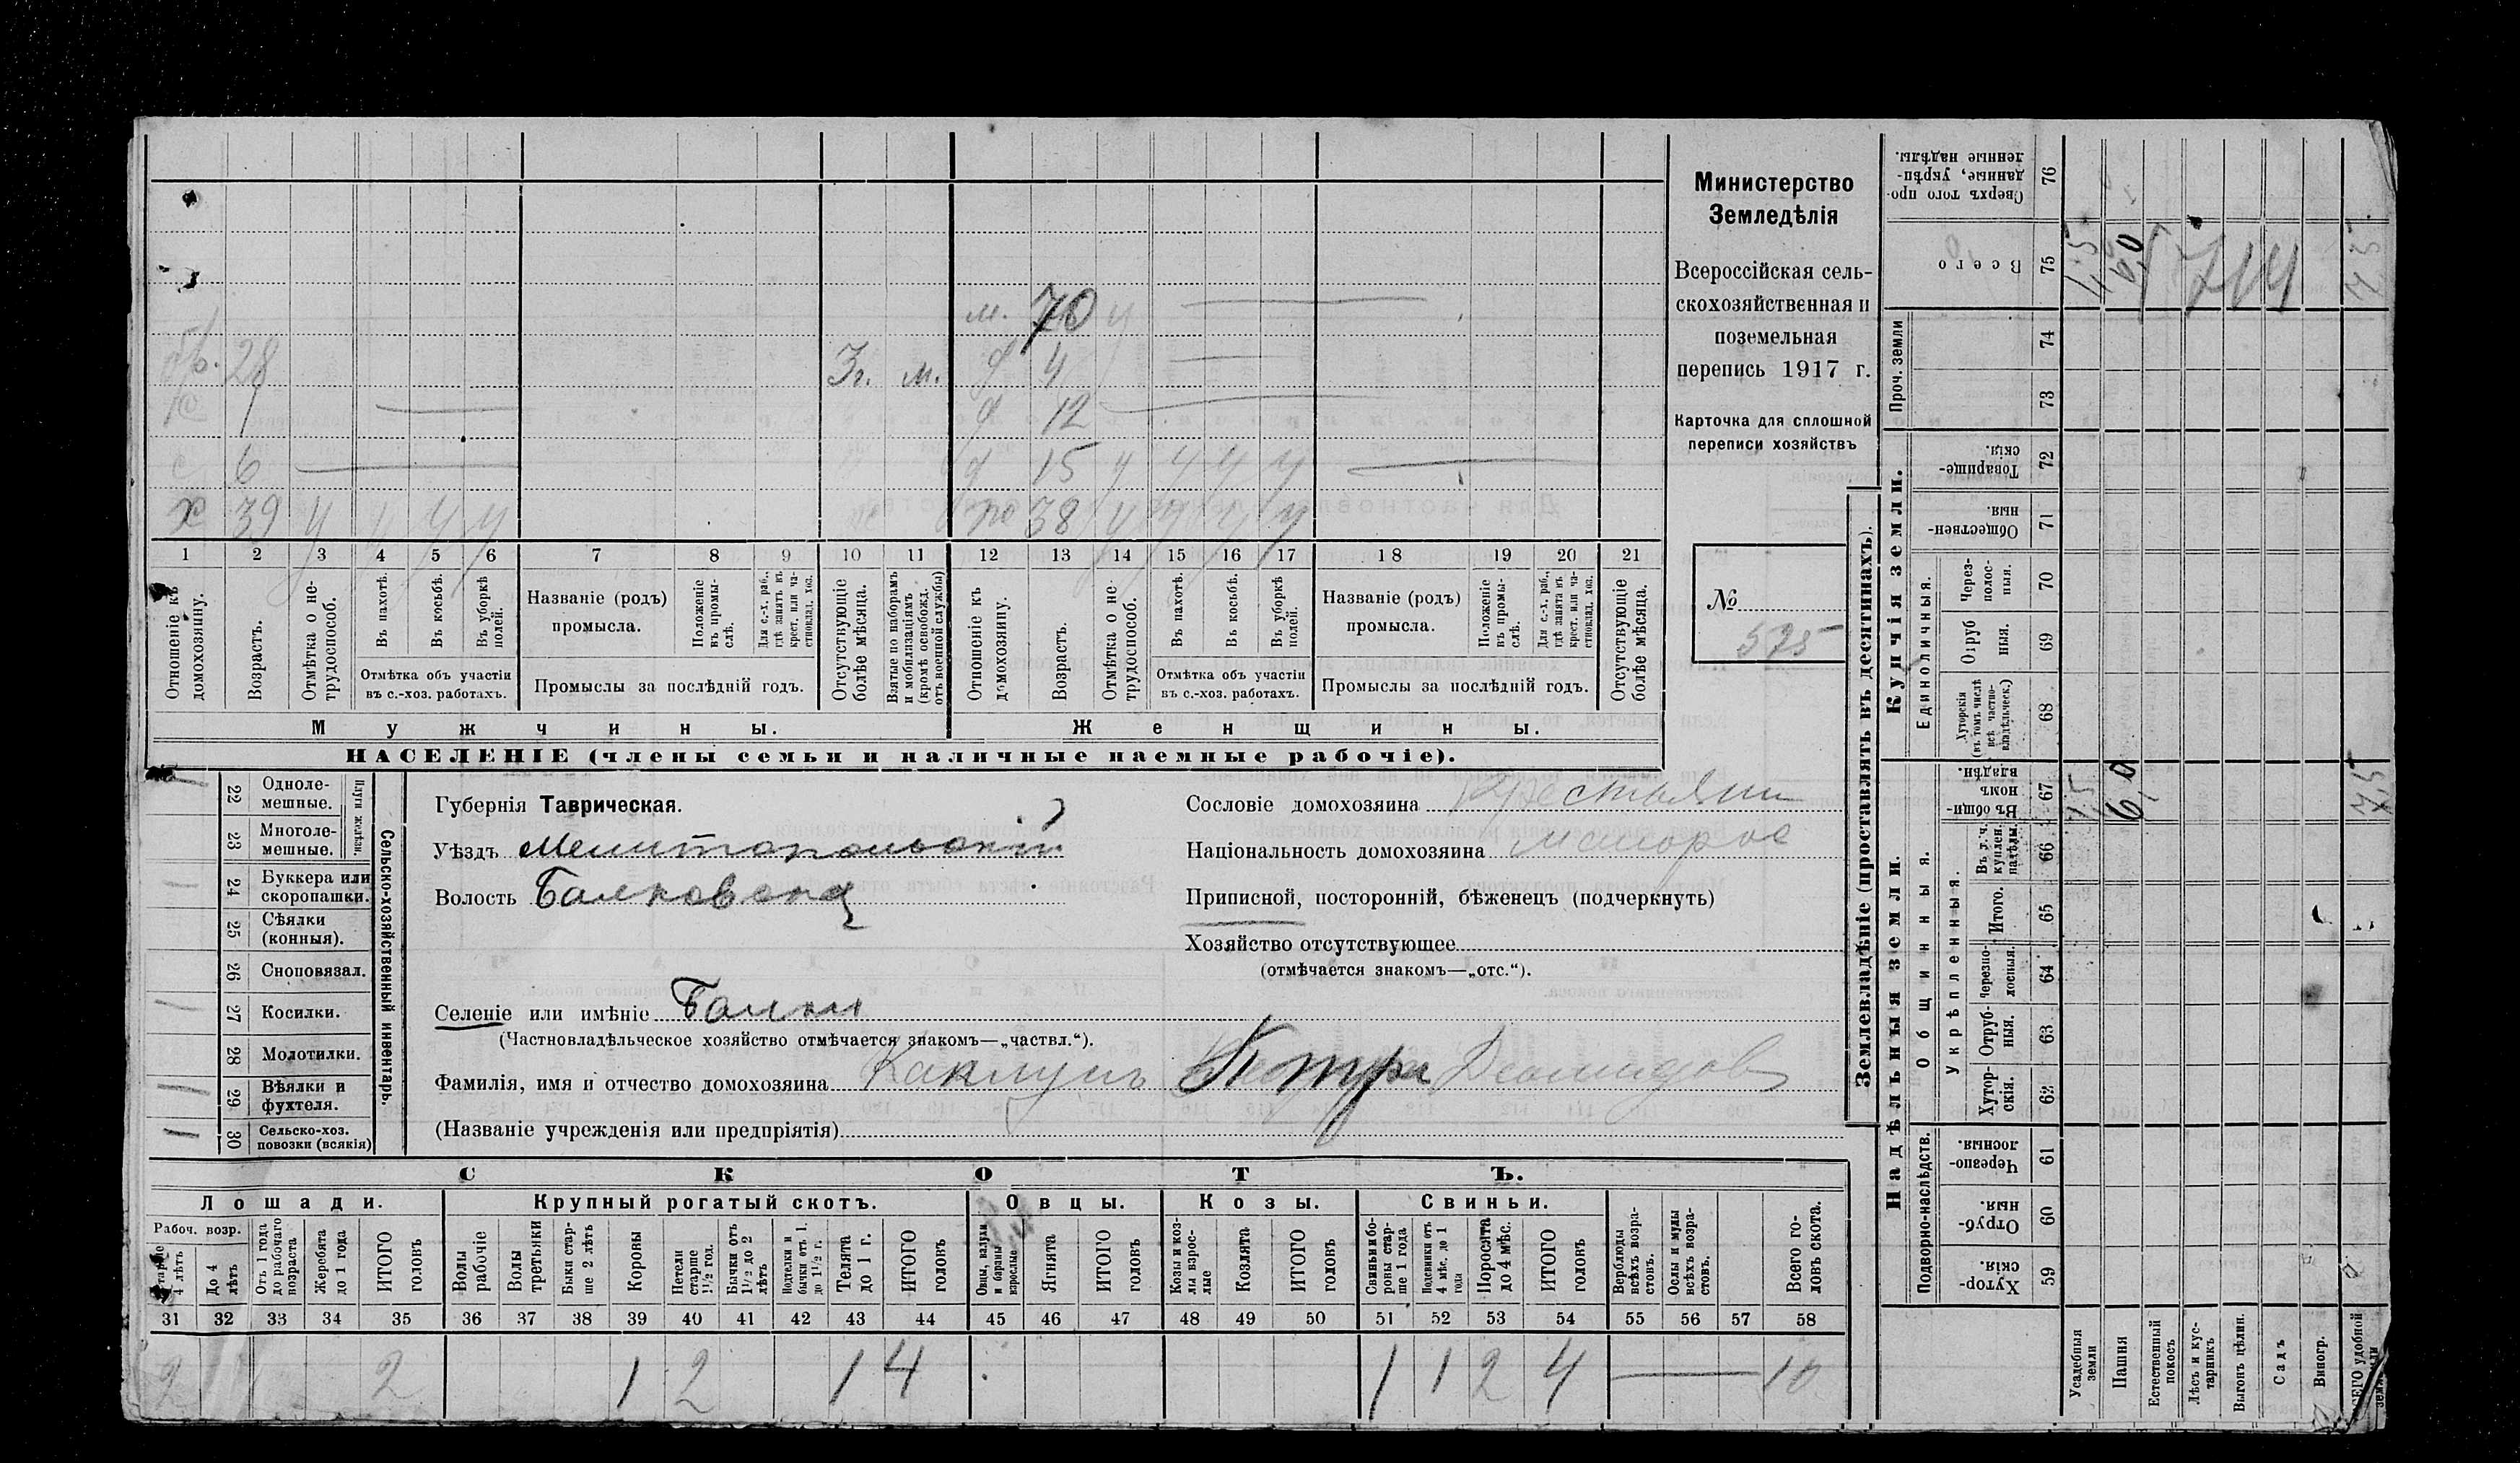 Министерство
Земледѣлія
Всероссійская сель-
скохозяйственная и
поземельная
перепись 1917 г.
Карточка для сплошной
переписи хозяйствъ
№
575
м. 70 ч
бр. 28 3г. м. д 4
1 д 12
с 6 д 15 ч ч ч ч
х 39 ч ч ч ч ж 38 ч ч ч ч
1 2 3 4 5 6 7 8 9 10 11 12 13 14 15 16 17 18 19 20 21
Отношеніе къ домохозяину.
Возрастъ.
Отмѣтка о не-трудоспособ.
Въ пахотѣ.
Въ косьбѣ.
Въ уборкѣ полей.
Отмѣтка объ участіи
въ с.-хоз. работахъ.
Названіе (родъ)
промысла.
Положеніе въ промы-слѣ.
Для с.-х. раб., гдѣ занятъ въ крест. или ча-стновлад. хоз.
Промыслы за послѣдній годъ.
Отсутствующіе болѣе мѣсяца.
Взятые по наборамъ и мобилизаціямъ (кромѣ освобожд. отъ военной службы)
Отношеніе къ домохозяину.
Возрастъ.
Отмѣтка о не-трудоспособ.
Въ пахотѣ.
Въ косьбѣ.
Въ уборкѣ полей.
Отмѣтка объ участіи
въ с.-хоз. работахъ.
Названіе (родъ)
промысла.
Положеніе въ промы-слѣ.
Для с.-х. раб., гдѣ занята въ крест. или ча-стновлад. хоз.
Промыслы за послѣдній годъ.
Отсутствующіе болѣе мѣсяца.
Мужчины. Женщины.
НАСЕЛЕНІЕ (члены семьи и наличные наемные рабочіе).
22 Одноле-мешные.
23 Многоле-мешные.
Плуги желѣзн.
24 Буккера или скоропашки.
25 Сѣялки (конныя).
26 Сноповязал.
27 Косилки.
28 Молотилки.
29 Вѣялки и фухтеля.
30 Сельско-хоз. повозки (всякія)
Сельско-хозяйственный инвентарь.
Губернія Таврическая.
Уѣздъ Мелитопольскій
Волость Балковская
Селеніе или имѣніе Балки
(Частновладѣльческое хозяйство отмѣчается знакомъ—„частвл.“).
Фамилія, имя и отчество домохозяина Каплунъ Петръ Деомидов
(Названіе учрежденія или предпріятія)
Сословіе домохозяина Крестьянин
Національность домохозяина малорос
Приписной, посторонній, бѣженецъ (подчеркнуть)
Хозяйство отсутствующее
(отмѣчается знакомъ—„отс.“).
СКОТЪ.
Лошади. Крупный рогатый скотъ. Овцы. Козы. Свиньи.
Рабоч. возр.
Старше 4 лѣтъ
До 4 лѣтъ
Отъ 1 года до рабочаго возраста
Жеребята до 1 года
ИТОГО головъ
Волы рабочіе
Волы третьяки
Быки стар-ше 2 лѣтъ
Коровы
Нетели старше 1½ год.
Бычки отъ 1½ до 2 лѣтъ
Подтелки и бычки отъ 1. до 1½ г.
Телята до 1 г.
ИТОГО головъ
Овцы, валухи и бараны взрослые
Ягнята
ИТОГО головъ
Козы и коз-лы взрос-лые
Козлята
ИТОГО головъ
Свиньи и бо-ровы стар-ше 1 года
Подсвинки отъ 4 мѣс. до 1 года
Поросята до 4 мѣс.
ИТОГО головъ
Верблюды всѣхъ возра-стовъ.
Ослы и мулы всѣхъ возра-стовъ.
Всего го-ловъ скота.
31 32 33 34 35 36 37 38 39 40 41 42 43 44 45 46 47 48 49 50 51 52 53 54 55 56 57 58
2 2 1 2 1 4 1 1 2 4 10
Землевладѣніе (проставлять въ десятинахъ).
Надѣльныя земли. Купчія земли. Проч. земли
Подворно-наслѣдств.
Общинныя.
Укрѣпленныя.
Единоличныя.
Хутор-скія. 59
Отруб-ныя. 60
Черезпо-лосныя. 61
Хутор-скія. 62
Отруб-ныя. 63
Черезпо-лосныя. 64
Итого. 65
Въ т. ч. куплен. надѣлы. 66
Въ общин-номъ владѣн. 67
Хуторскія (въ томъ числѣ всѣ частно-владѣльческ.) 68
Отруб ныя. 69
Через-полос-ныя. 70
Обществен-ныя. 71
Товарище-скія. 72
73
74
Всего 75
Сверхъ того про-данные, укрѣп-ленные надѣлы. 76
Усадебныя земли
Пашня
Естественный покосъ
Лѣсъ и кус-тарникъ
Выгонъ цѣлин.
Садъ
Виногр.